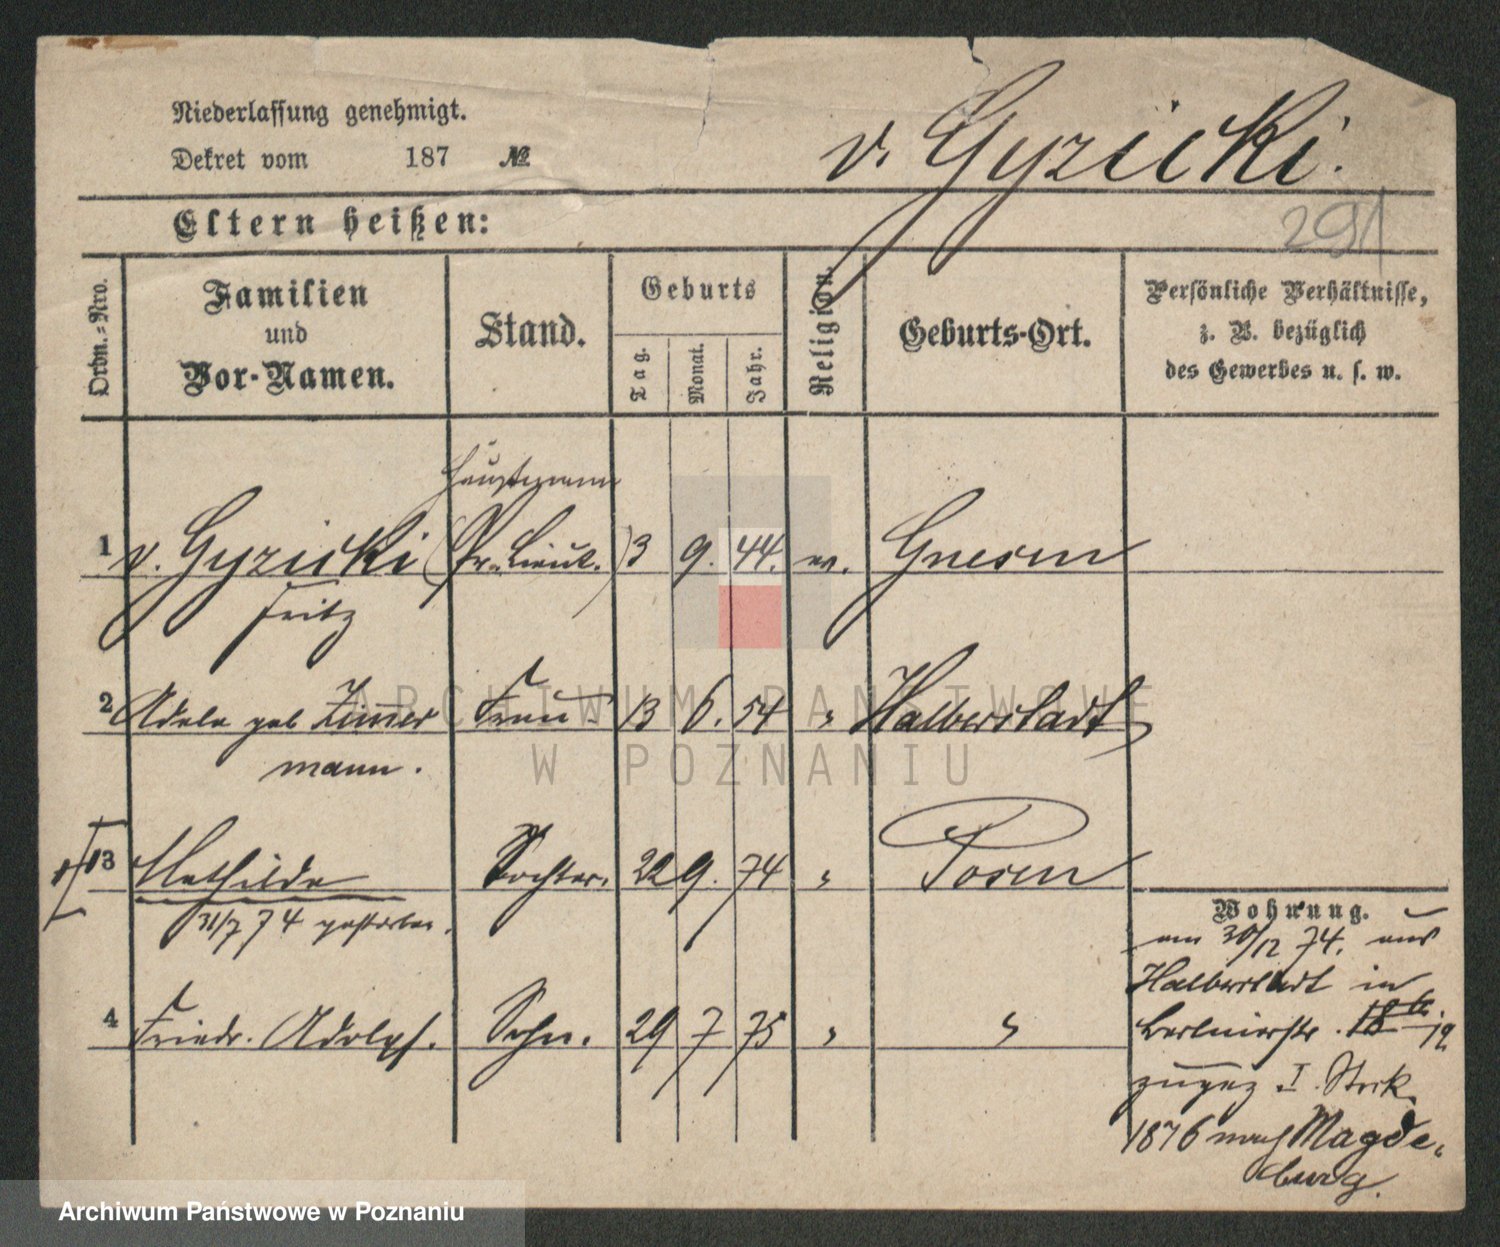 Niederlassung genehmigt.
Dekret vom 187 №
v. Gyzicki.
291
Eltern heißen:
Ordn.-Nro.
Familien und Vor-Namen.
Stand.
Geburts
Tag. Monat. Jahr.
Religion.
Geburts-Ort.
Persönliche Verhältnisse,
z. B. bezüglich
des Gewerbes u. s. w.
Hauptmann
1 v. Gyzicki (Pr. Lieut.) 3 9. 44. ev. Gnesen
Fritz
2 Adele geb Zimmer Frau 13 6. 54 " Halberstadt
mann.
3 Mathilde Tochter. 22 9. 74 " Posen
31/7 74 gestorben.
4 Friedr. Adolph. Sohn. 29 7 75 " "
Wohnung.
am 30/12 74. aus
Halberstadt in
Berlinerstr. 19
zugez I. Stock.
1876 nach Magde-
burg.
ARCHIWUM PAŃSTWOWE
W POZNANIU
Archiwum Państwowe w Poznaniu